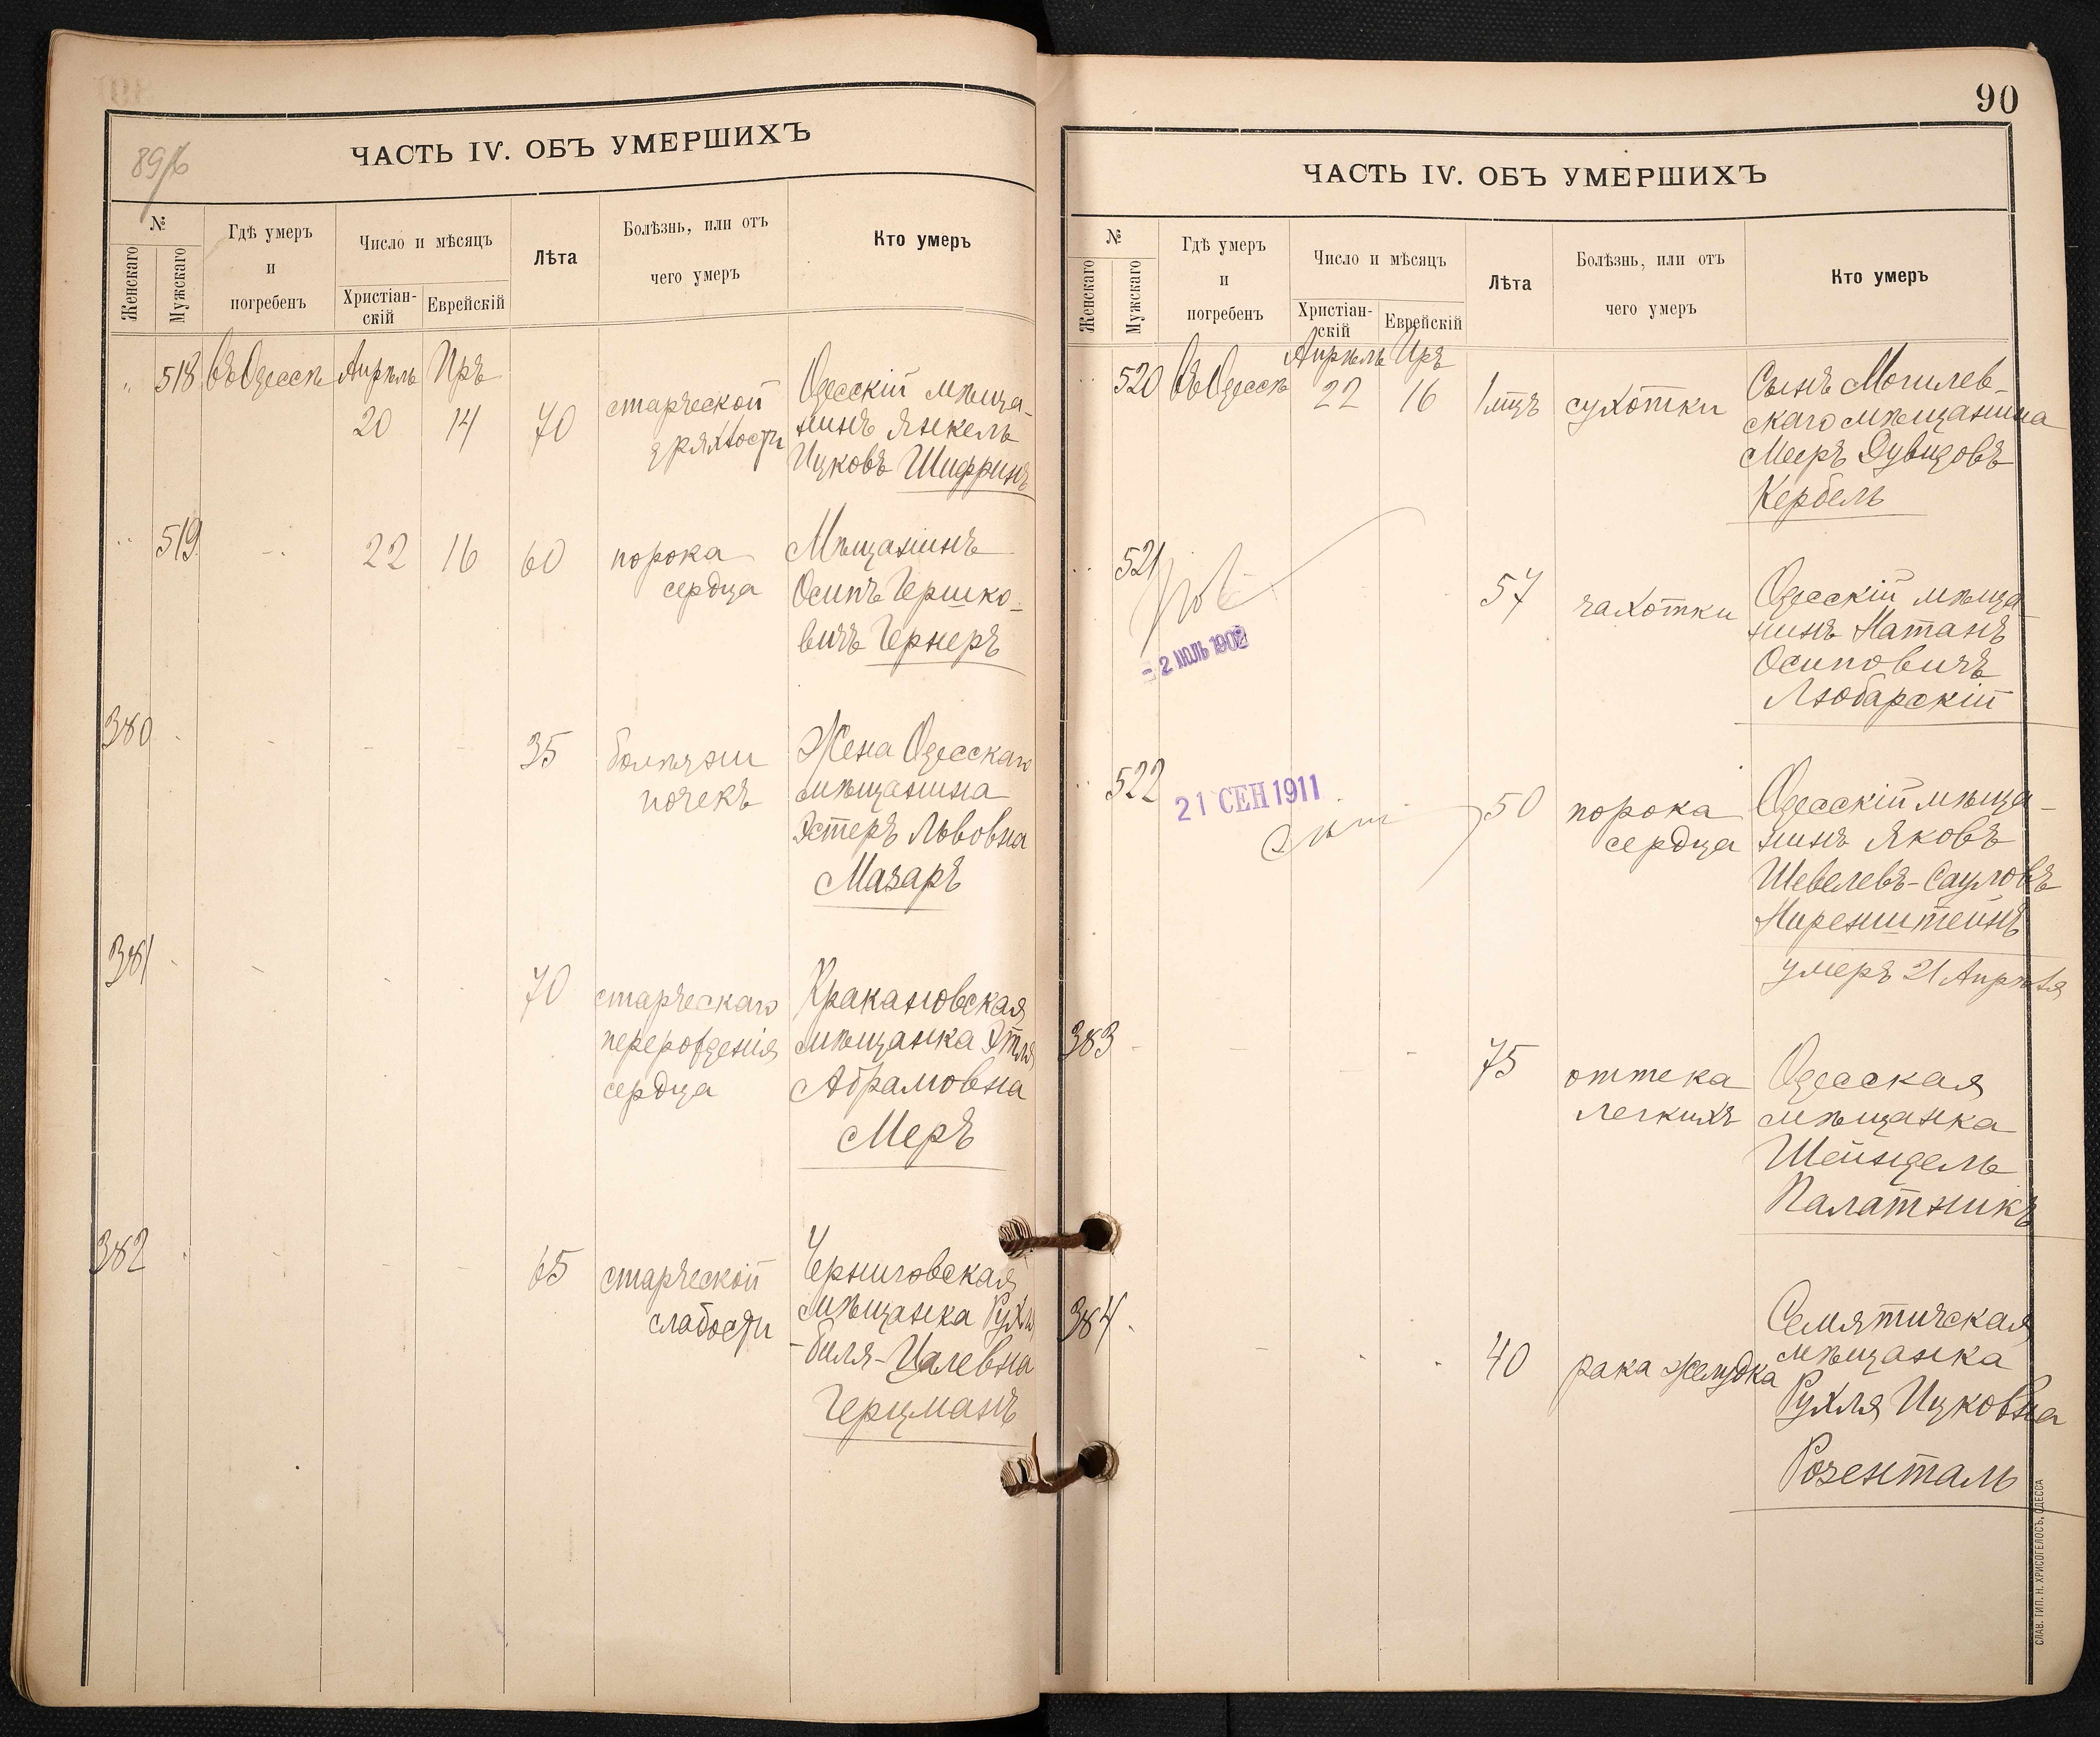 89/б
ЧАСТЬ IV. ОБЪ УМЕРШИХЪ
№
Женскаго
Мужскаго
Гдѣ умеръ
и
погребенъ
Число и мѣсяцъ
Христіан-
скій
Еврейскій
Лѣта
Болѣзнь, или отъ
чего умеръ
Кто умеръ
518 въ Одессѣ Апрѣль Иръ
20 14 70
старческой
дряхлости
Одесскій мѣща-
нинъ Янкель
Ицковъ Шифринъ
519 22 16 60
порока
сердца
Мѣщанинъ
Осипъ Гершко-
вичъ Гернеръ
380 35
болѣзни
почекъ
Жена Одесскаго
мѣщанина
Эстеръ Львовна
Мазаръ
381 70
старческаго
перерожденія
сердца
Кракановская
мѣщанка Этля
Абрамовна
Меръ
382 65
старческой
слабости
Черниговская
мѣщанка Рухля
-Биля-Цалевна
Герцманъ
90
ЧАСТЬ IV. ОБЪ УМЕРШИХЪ
№
Женскаго
Мужскаго
Гдѣ умеръ
и
погребенъ
Число и мѣсяцъ
Христіан-
скій
Еврейскій
Лѣта
Болѣзнь, или отъ
чего умеръ
Кто умеръ
520 въ Одессѣ Апрѣль Иръ
22 16 1 мцъ
сухотки
Сынъ Могилев-
скаго мѣщанина
Мееръ Дувидовъ
Кербель
521
2 ИЮЛЬ 1908
57
чахотки
Одесскій мѣща-
нинъ Натанъ
Осиповичъ
Любарскій
522
21 СЕН 1911
50
порока
сердца
Одесскій мѣща-
нинъ Яковъ
Шевелевъ-Сауловъ
Миренштейнъ
умеръ 21 Апрѣля
383 75
оттека
легкихъ
Одесская
мѣщанка
Шейндель
Палатникъ
384 40
рака желудка
Семятичская
мѣщанка
Рухля Ицковна
Розенталь
СЛАВ. ТИП. Н. ХРИСОГЕЛОСЪ, ОДЕССА